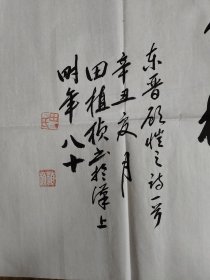 东晋顾恺之诗一首
辛丑夏月
田植桢书于汉上
时年八十